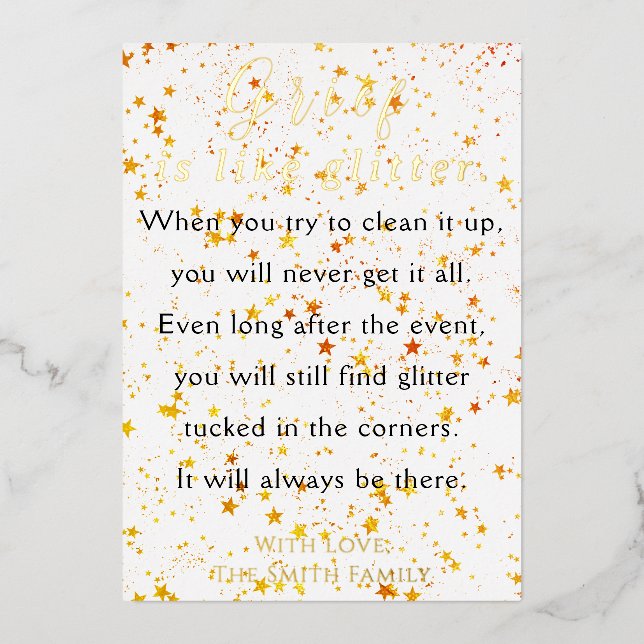 Grief
is like glitter.
When you try to clean it up,
you will never get it all.
Even long after the event,
you will still find glitter
tucked in the corners.
It will always be there.
With Love,
The Smith Family